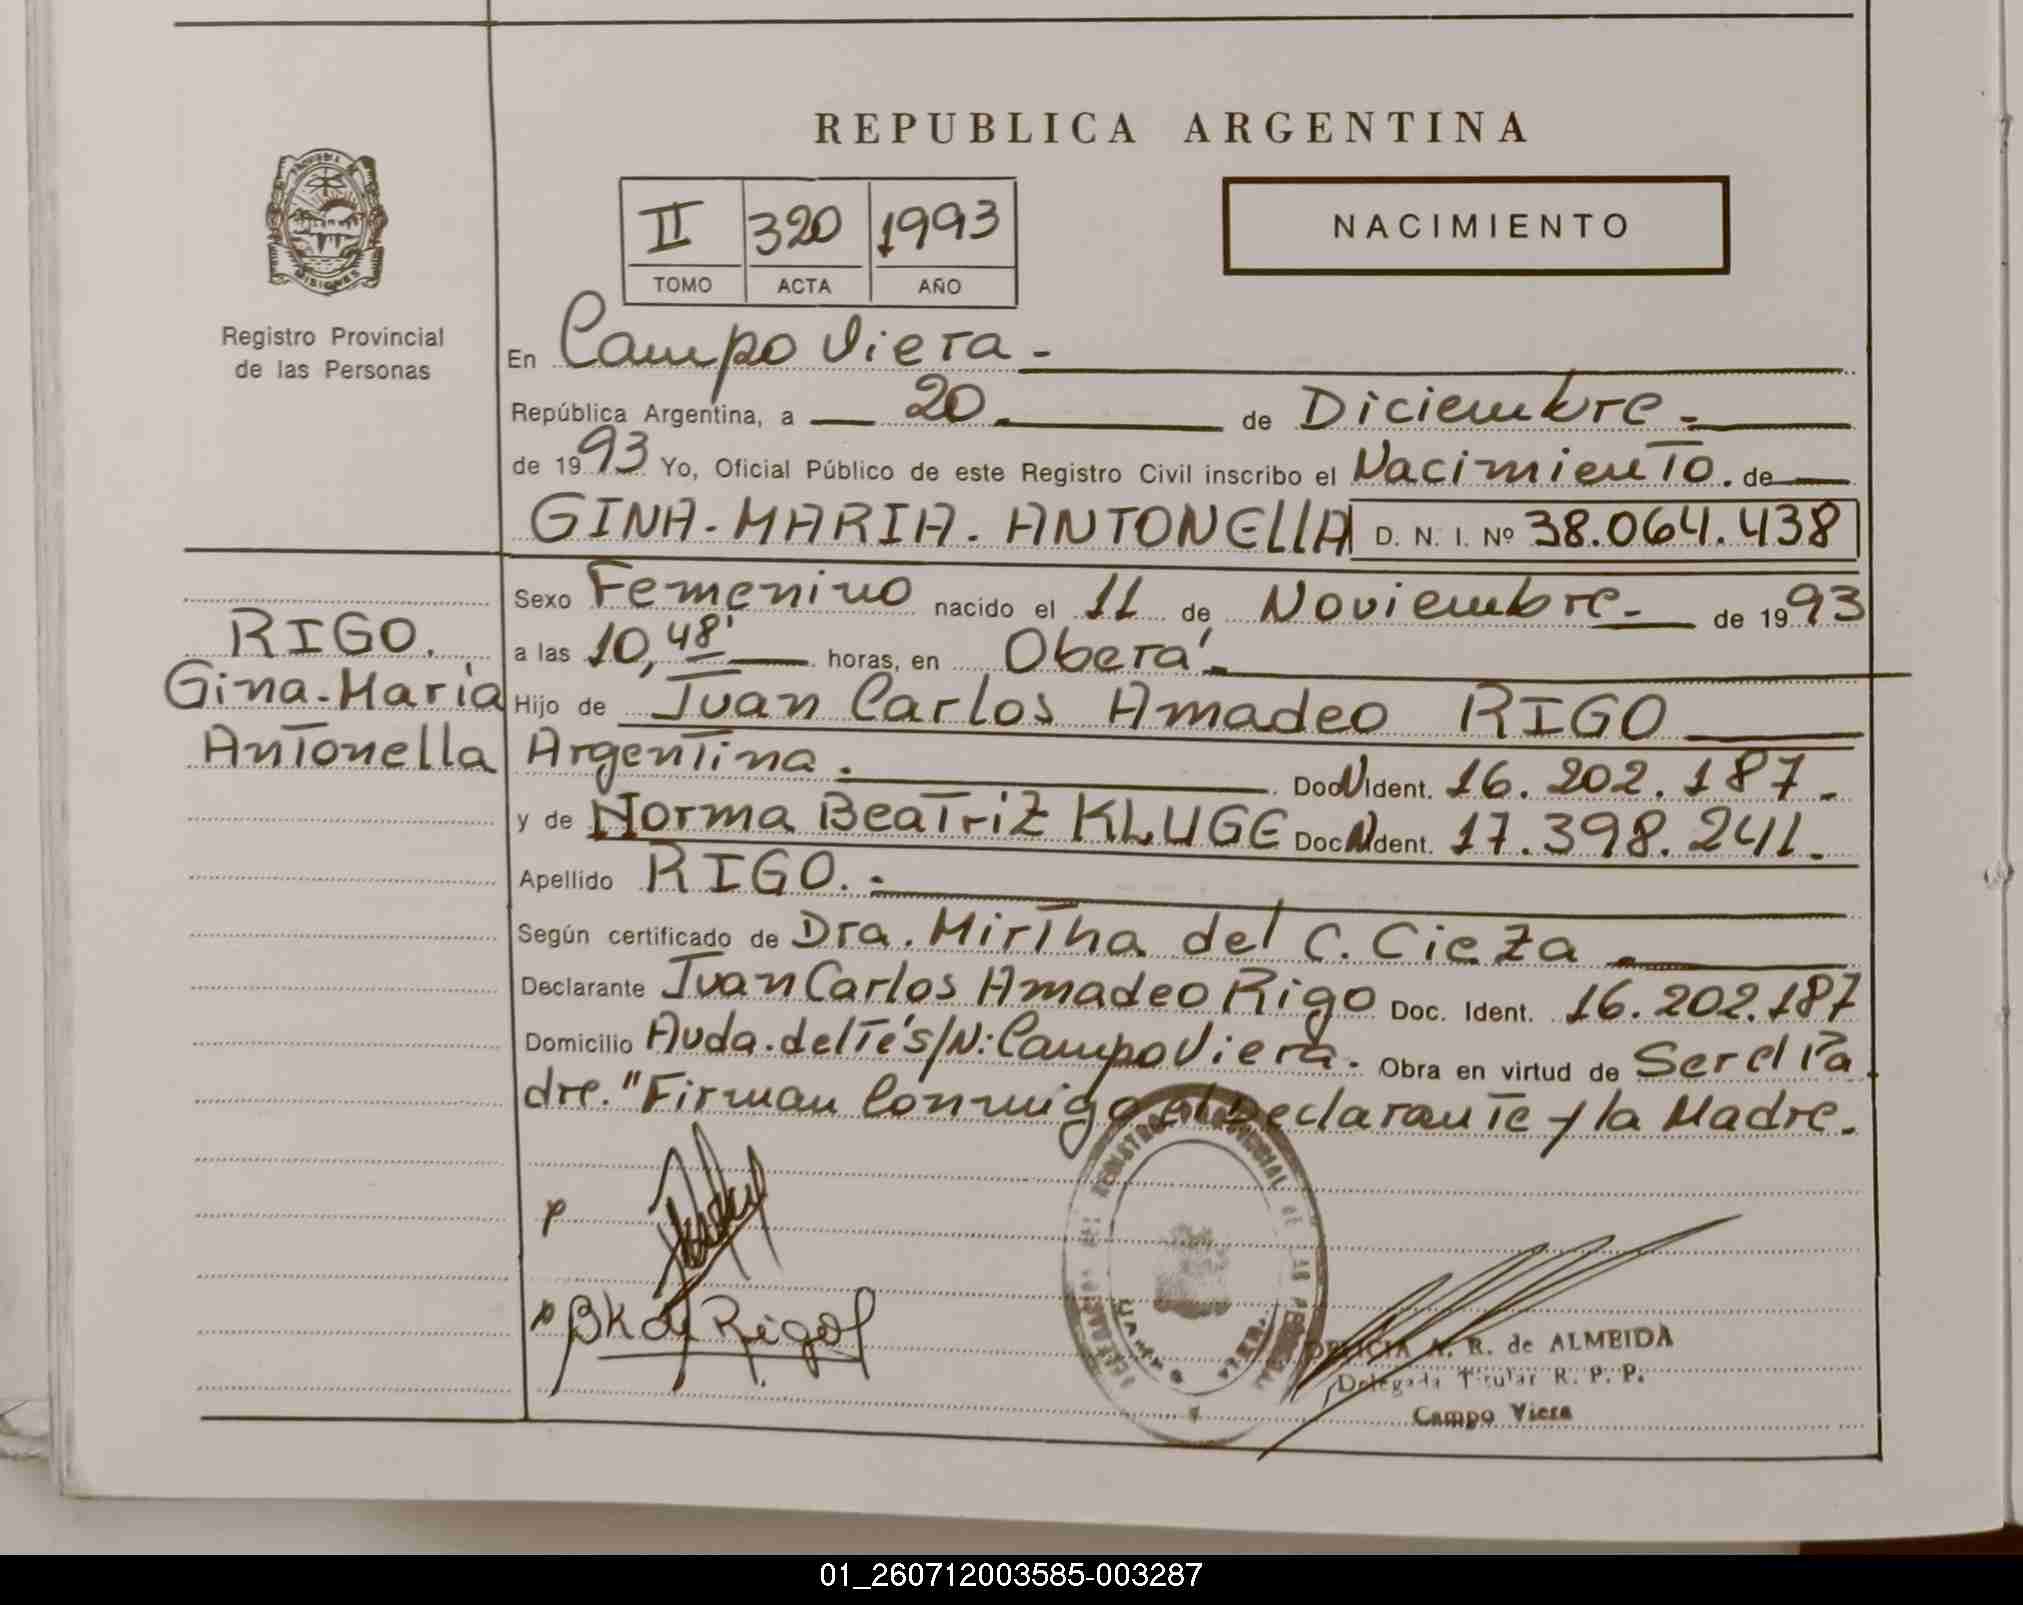 REPUBLICA ARGENTINA
II 320 1993
TOMO ACTA AÑO
NACIMIENTO
Registro Provincial
de las Personas
En Campo Viera.-
República Argentina, a 20 de Diciembre.-
de 1993 Yo, Oficial Público de este Registro Civil inscribo el Nacimiento. de
GINA-MARIA. ANTONELLA D. N. I. Nº 38.064.438
Sexo Femenino nacido el 11 de Noviembre.- de 1993
a las 10,48' horas, en Oberá.-
RIGO.
Gina-María
Antonella
Hijo de Juan Carlos Amadeo RIGO
Argentina. DocNIdent. 16.202.187.-
y de Norma Beatriz KLUGE DocNIdent. 17.398.241.
Apellido RIGO.-
Según certificado de Dra. Mirtha del C. Cieza
Declarante Juan Carlos Amadeo Rigo Doc. Ident. 16.202.187
Domicilio Avda. del Té s/N: Campo Viera. Obra en virtud de Ser el Pa
dre." Firman Conmigo el Declarante y la Madre.
REGISTRO PROVINCIAL DE LAS
CAMPO VIERA
BK de Rigo
DELICIA A. R. de ALMEIDA
Delegada Titular R. P. P.
Campo Viera
01_260712003585-003287